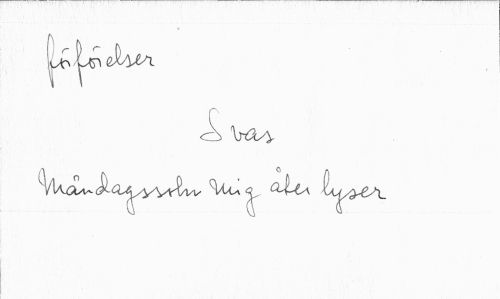 förföelser
Svas
Måndagssoln mig åter lyser